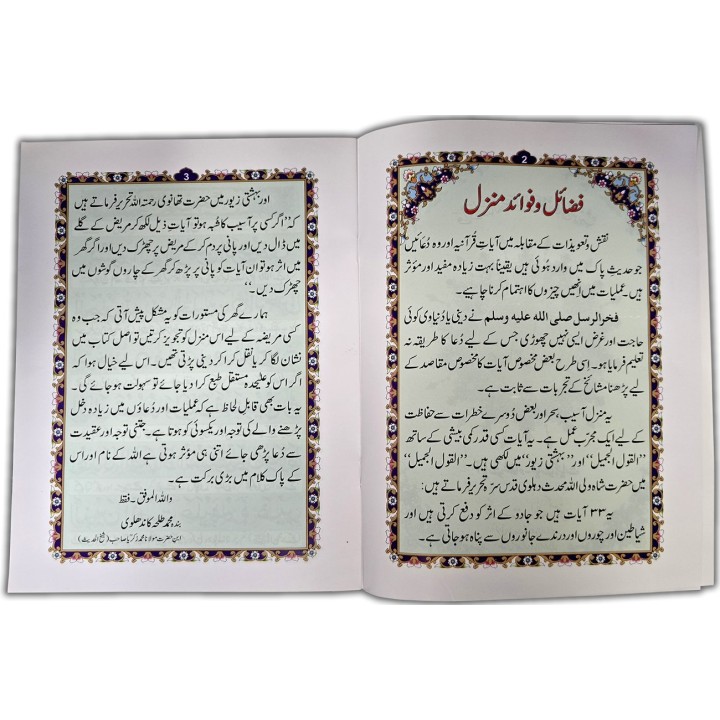 2
فضائل و فوائد منزل
نقش و تعویذات کے مقابلہ میں آیاتِ قُرآنیہ اور وہ دُعائیں
جو حدیثِ پاک میں وارد ہُوئی ہیں یقیناً بہت زیادہ مفید اور مؤثر
ہیں۔ عملیات میں انھیں چیزوں کا اہتمام کرنا چاہیے۔
فخرالرسل صلی الله علیه وسلم نے دینی یا دُنیاوی کوئی
حاجت اور غرض ایسی نہیں چھوڑی جس کے لیے دُعا کا طریقہ نہ
تعلیم فرمایا ہو۔ اِسی طرح بعض مخصوص آیات کا مخصوص مقاصد کے
لیے پڑھنا مشائخ کے تجربات سے ثابت ہے۔
یہ منزل آسیب، سحر اور بعض دُوسرے خطرات سے حفاظت
کے لیے ایک مجرّب عمل ہے۔ یہ آیات کسی قدر کمی بیشی کے ساتھ
’’القول الجمیل‘‘ اور ’’بہشتی زیور‘‘ میں لکھی ہیں۔ ’’القول الجمیل‘‘
میں حضرت شاہ ولی اللہ محدث دہلوی قدس سرّہ تحریر فرماتے ہیں:
یہ ۳۳ آیات ہیں جو جادو کے اثر کو دفع کرتی ہیں اور
شیاطین اور چوروں اور درندے جانوروں سے پناہ ہو جاتی ہے۔
3
اور بہشتی زیور میں حضرت تھانوی رحمتہ اللہ تحریر فرماتے ہیں
کہ ’’اگر کسی پر آسیب کا شُبہ ہو تو آیاتِ ذیل لکھ کر مریض کے گلے
میں ڈال دیں اور پانی پر دم کر کے مریض پر چھڑک دیں اور اگر گھر
میں اثر ہو تو ان آیات کو پانی پر پڑھ کر گھر کے چاروں گوشوں میں
چھڑک دیں۔‘‘
ہمارے گھر کی مستورات کو یہ مشکل پیش آتی کہ جب وہ
کسی مریضہ کے لیے اس منزل کو تجویز کرتیں تو اصل کتاب میں
نشان لگا کر یا نقل کرا کر دینی پڑتی تھیں۔ اس لیے خیال ہوا کہ
اگر اس کو علیحدہ مستقل طبع کرا دیا جائے تو سہولت ہو جائے گی۔
یہ بات بھی قابل لحاظ ہے کہ عملیات اور دُعاؤں میں زیادہ دخل
پڑھنے والے کی توجہ اور یکسوئی کو ہوتا ہے۔ جتنی توجہ اور عقیدت
سے دُعا پڑھی جائے اتنی ہی مؤثر ہوتی ہے اللہ کے نام اور اس
کے پاک کلام میں بڑی برکت ہے۔
واللہ الموفق۔ فقط
بندہ محمد طلحہ کاندھلوی
ابن حضرت مولانا محمد زکریا صاحب (شیخ الحدیث)